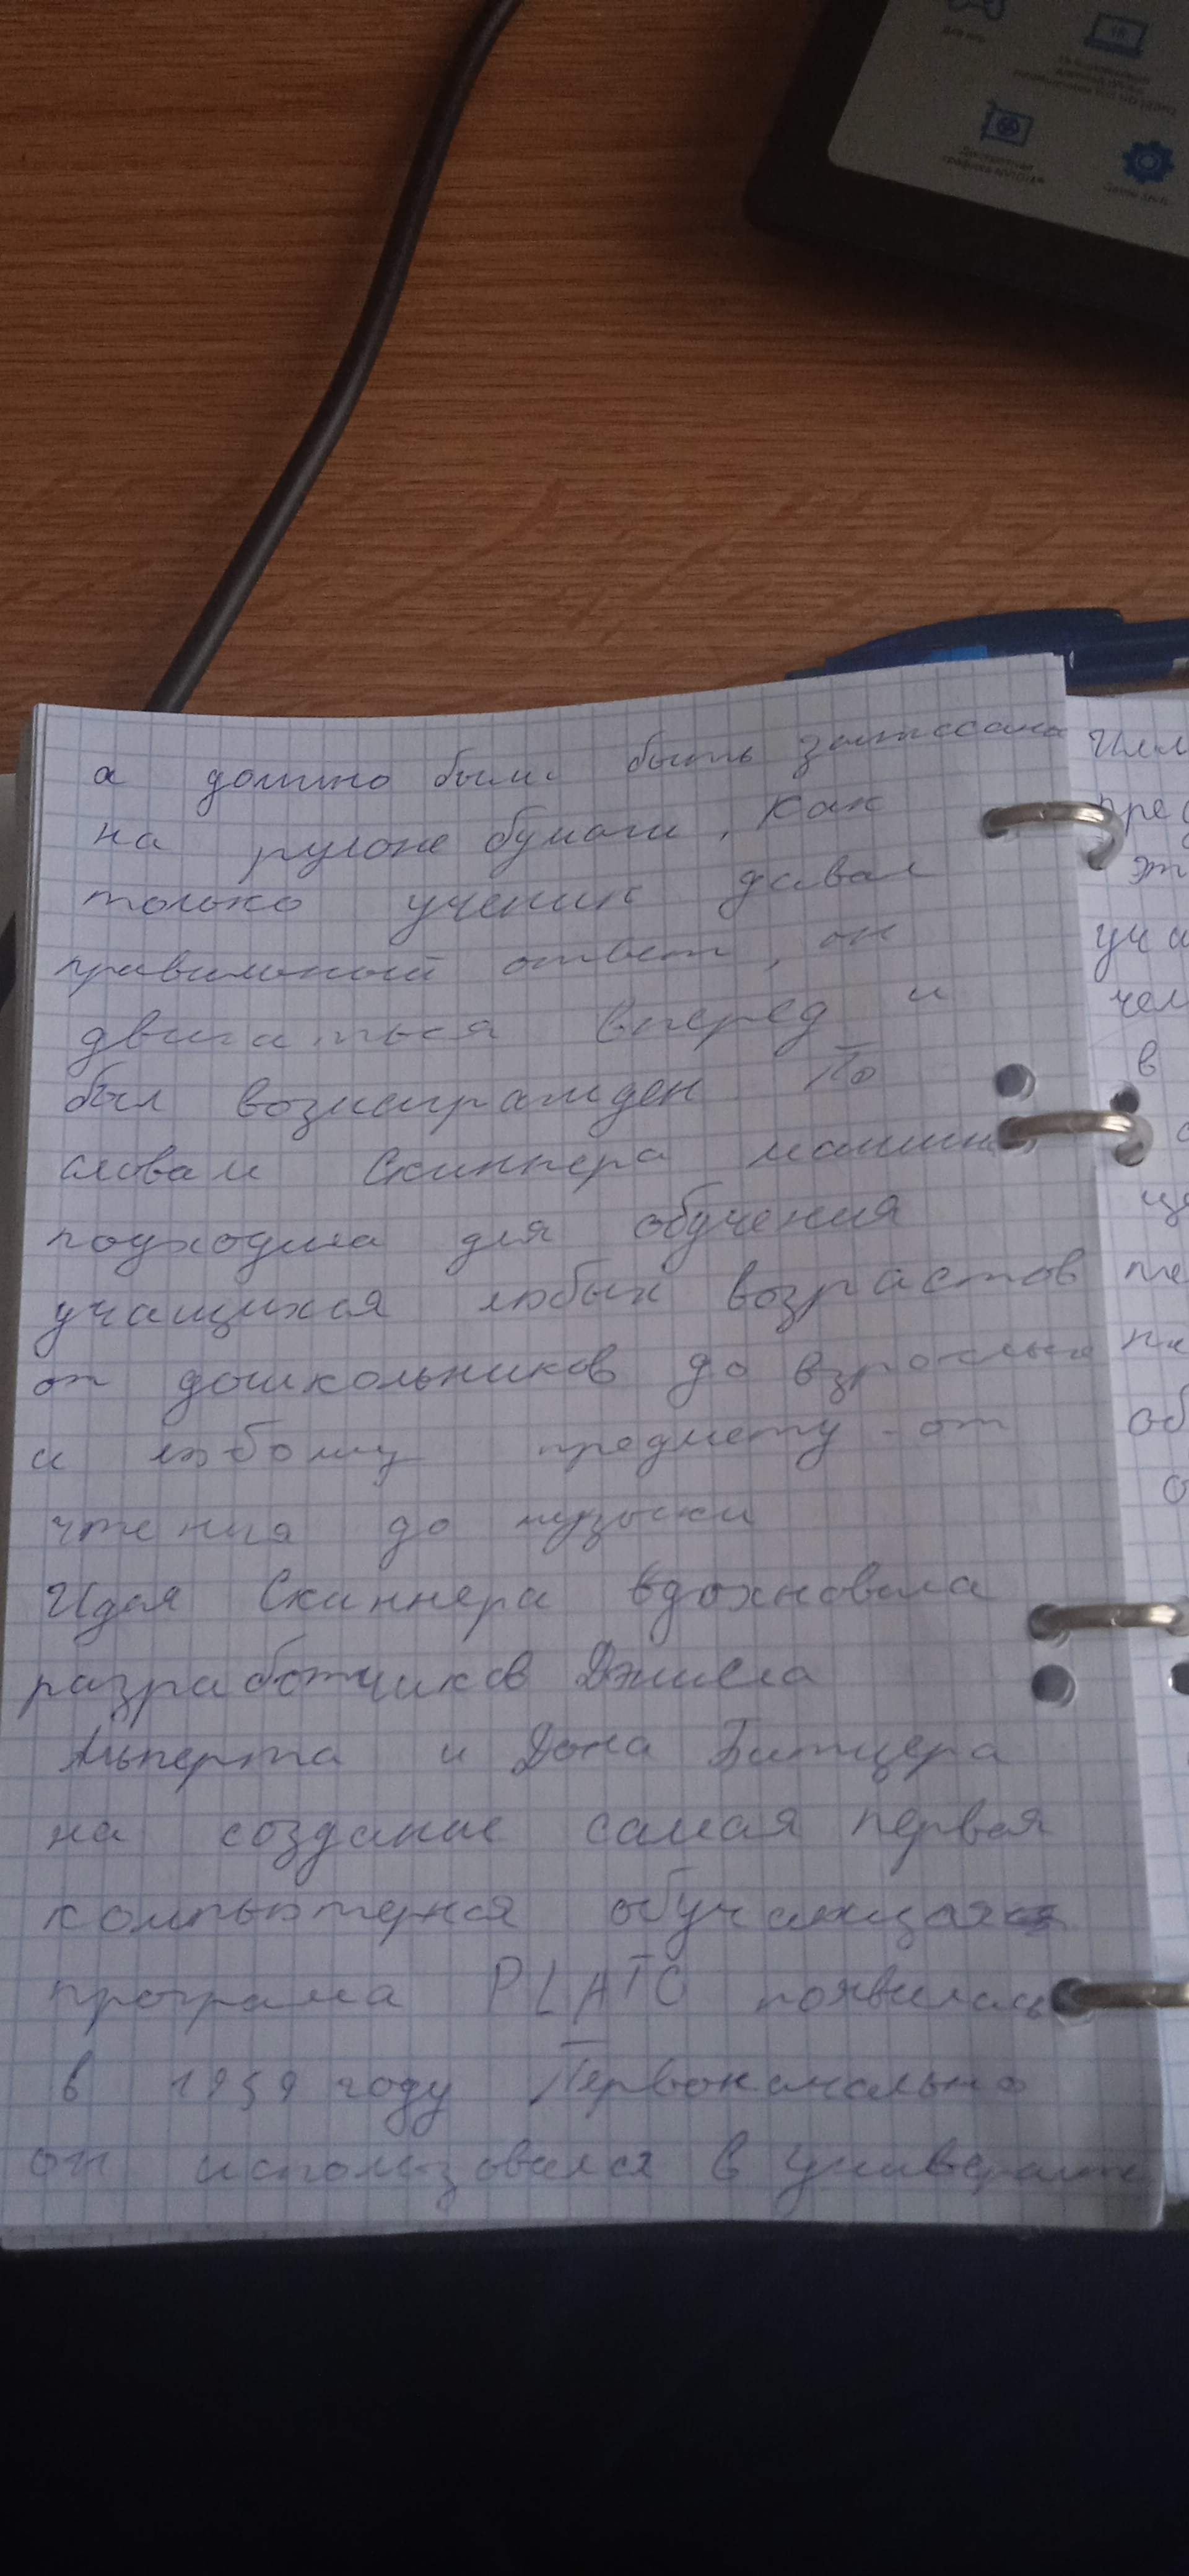 а должно было быть записано
на рулоне бумаги, как
только ученик давал
правильный ответ, он
двигаться вперед и
был вознагражден По
словам Скиннера машина
подходила для обучения
учащихся любых возрастов
от дошкольников до взрослых
и любому предмету - от
чтения до музыки
Идея Скиннера вдохновила
разработчиков Дэниела
Альперта и Дона Битцера
на создание самая первая
компьютерная обучающая
програма PLATO появилась
в 1959 году Первоначально
он использовался в
пред
эт
уча
чел
в
об
о